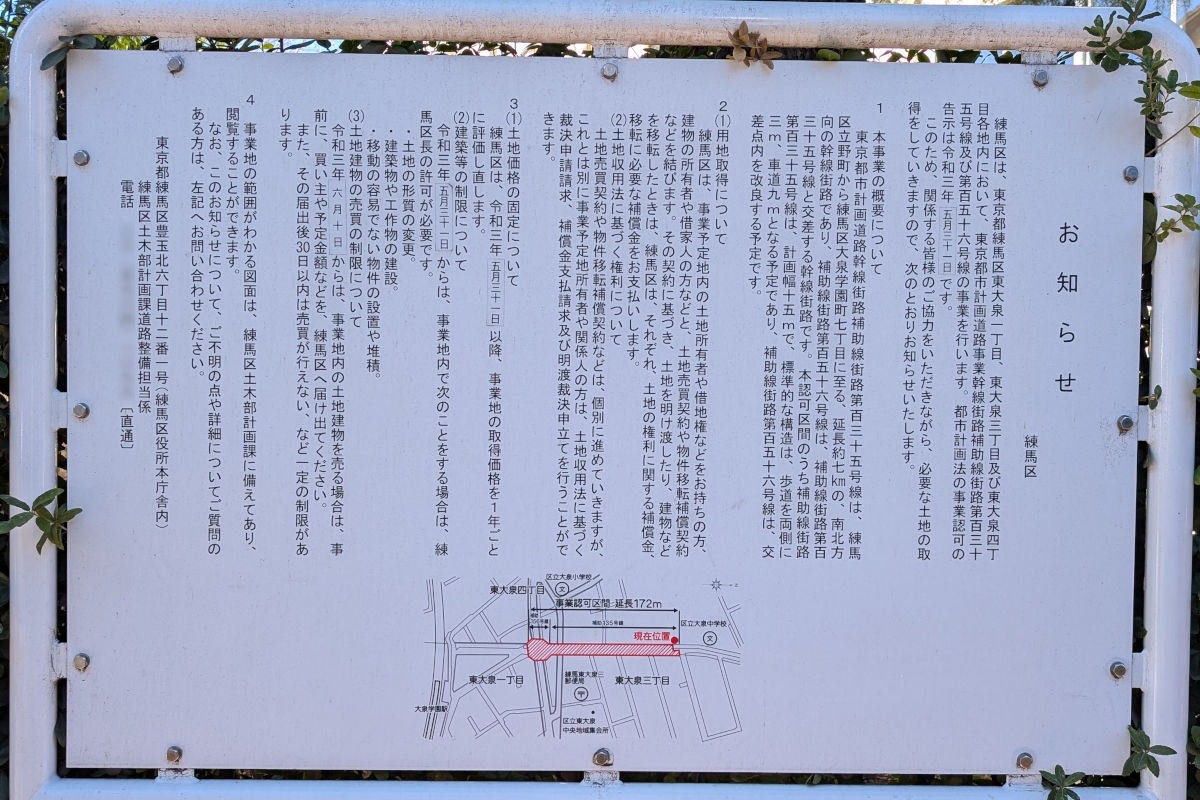 お知らせ
練馬区
練馬区は、東京都練馬区東大泉一丁目、東大泉三丁目及び東大泉四丁
目各地内において、東京都市計画道路事業幹線街路補助線街路第百三十
五号線及び第百五十六号線の事業を行います。都市計画法の事業認可の
告示は令和三年五月三十一日です。
このため、関係する皆様のご協力をいただきながら、必要な土地の取
得をしていきますので、次のとおりお知らせいたします。
1 本事業の概要について
東京都市計画道路幹線街路補助線街路第百三十五号線は、練馬
区立野町から練馬区大泉学園町七丁目に至る、延長約七kmの、南北方
向の幹線街路であり、補助線街路第百五十六号線は、補助線街路第百
三十五号線と交差する幹線街路です。本認可区間のうち補助線街路
第百三十五号線は、計画幅十五mで、標準的な構造は、歩道を両側に
三m、車道九mとなる予定であり、補助線街路第百五十六号線は、交
差点内を改良する予定です。
2
(1)用地取得について
練馬区は、事業予定地内の土地所有者や借地権などをお持ちの方、
建物の所有者や借家人の方などと、土地売買契約や物件移転補償契約
などを結びます。その契約に基づき、土地を明け渡したり、建物など
を移転したときは、練馬区は、それぞれ、土地の権利に関する補償金、
移転に必要な補償金をお支払いします。
(2)土地収用法に基づく権利について
土地売買契約や物件移転補償契約などは、個別に進めていきますが、
これとは別に事業予定地所有者や関係人の方は、土地収用法に基づく
裁決申請請求、補償金支払請求及び明渡裁決申立てを行うことがで
きます。
3
(1)土地価格の固定について
練馬区は、令和三年五月三十一日以降、事業地の取得価格を1年ごと
に評価し直します。
(2)建築等の制限について
令和三年五月三十一日からは、事業地内で次のことをする場合は、練
馬区長の許可が必要です。
・土地の形質の変更。
・建築物や工作物の建設。
・移動の容易でない物件の設置や堆積。
(3)土地建物の売買の制限について
令和三年六月十日からは、事業地内の土地建物を売る場合は、事
前に、買い主や予定金額などを、練馬区へ届け出てください。
また、その届出後30日以内は売買が行えない、など一定の制限があ
ります。
4
事業地の範囲がわかる図面は、練馬区土木部計画課に備えてあり、
閲覧することができます。
なお、このお知らせについて、ご不明の点や詳細についてご質問の
ある方は、左記へお問い合わせください。
東京都練馬区豊玉北六丁目十二番一号(練馬区役所本庁舎内)
練馬区土木部計画課道路整備担当係
電話
[直通]
区立大泉小学校
文
東大泉四丁目
事業認可区間:延長172m
補助
156号線
補助135号線
現在位置
区立大泉中学校
文
東大泉一丁目
練馬東大泉三
郵便局
〒
東大泉三丁目
大泉学園駅
区立東大泉
中央地域集会所